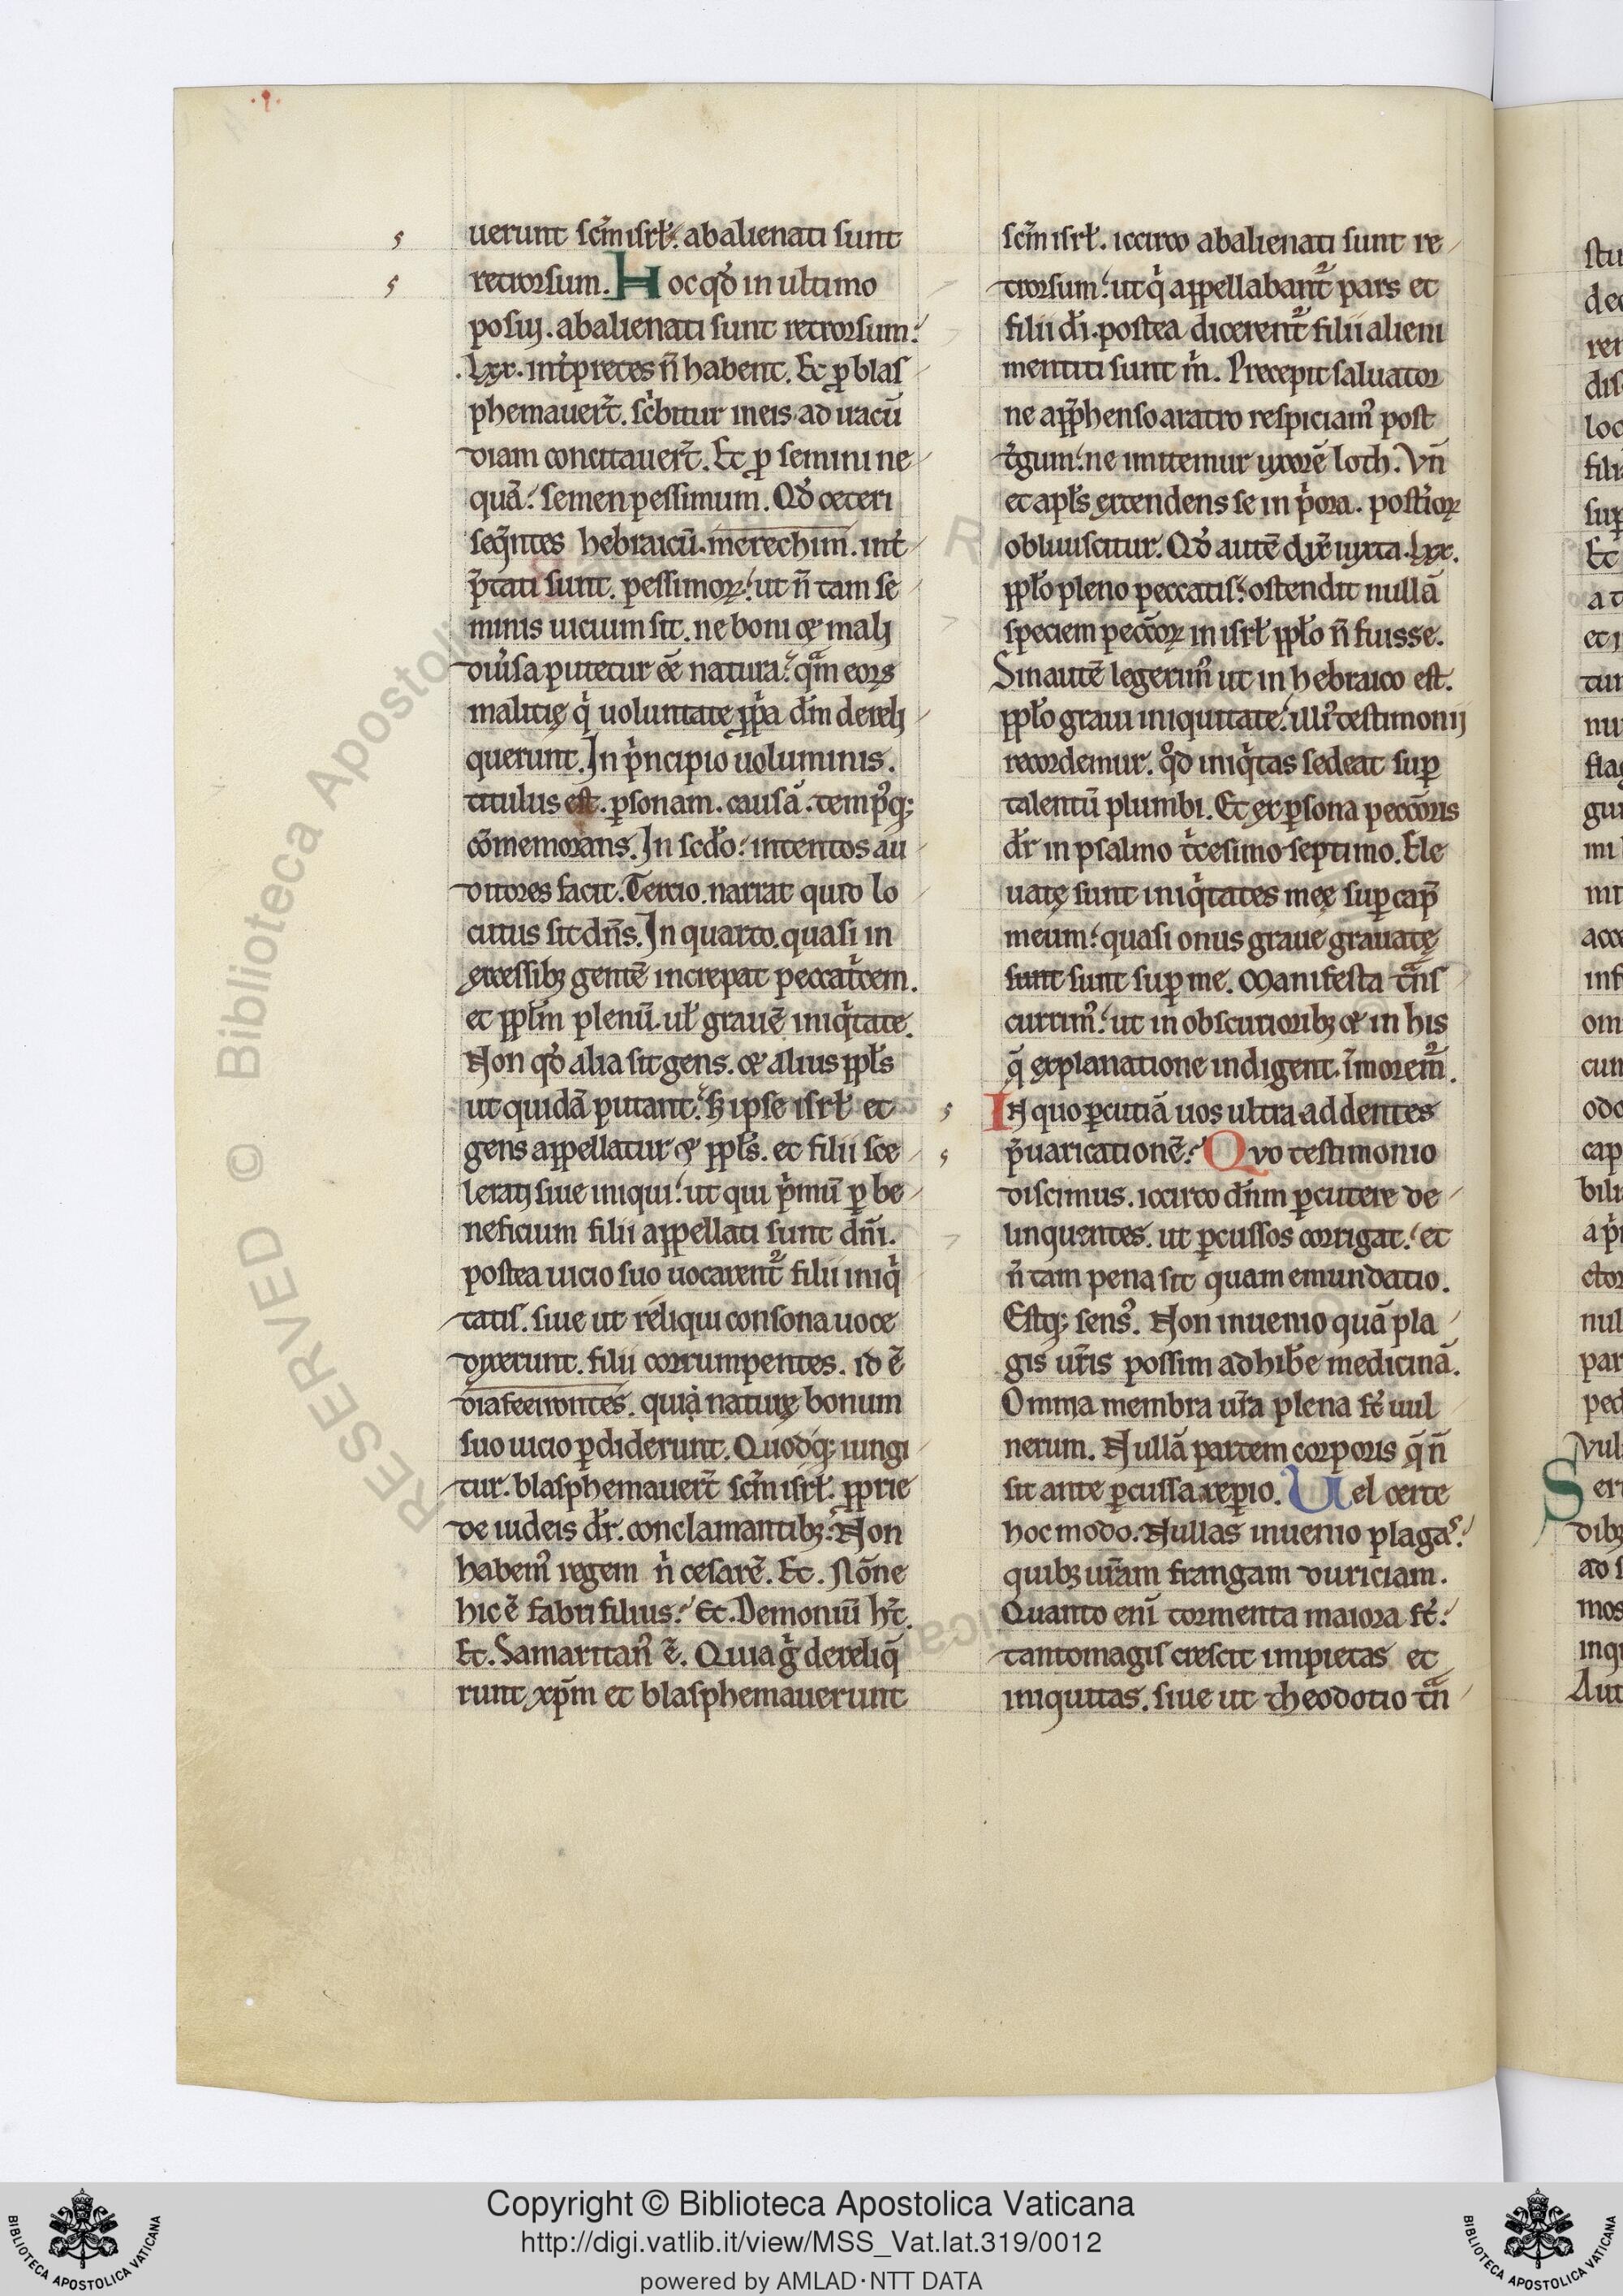 uerunt sc̄m isrł. abalienati sunt
retrorsum. Hoc qd̓ in ultimo
posui. abalienati sunt retrorsum:
.lxx. int̓pretes n̄ habent. Et ꝓ blas
phemauer̄t. sc̓bitur in eis. ad iracū
diam concitauer̄t. Et ꝓ semini ne
quā: semen pessimum. Qd̓ ceteri
seq̄ntes hebraicū. merechim. int̓
p̄tati sunt. pessimoꝝ: ut n̄ tam se
minis uicium sit. ne boni & mali
diu̓sa putetur eē natura: qm̄ eoꝝ
malitię q̓ uoluntate ꝓp̓a dn̄m dereli
querunt. In p̓ncipio uoluminis.
titulus est. ꝑsonam. causā. tempꝰq;
cōmemorans. In scdo: intentos au
ditores facit. Tercio. narrat quid lo
cutus sit dn̄s. In quarto. quasi in
excessibꝫ gentē increpat peccat̓cem.
et ppłm plenū. uł grauē iniq̓tate.
Non qd̓ alia sit gens. & alius ppłs
ut quidā putant: sꝫ ipse isrł et
gens appellatur & ppłs. et filii sce
lerati siue iniqui: ut qui p̓mū ꝑ be
neficium filii appellati sunt dn̄i.
postea uicio suo uocarent̓ filii iniq̓
tatis. siue ut reliqui consona uoce
dixerunt. filii corrumpentes. id ē
diafeeirontes. quia naturę bonum
suo uicio ꝑdiderunt. Quodq; iungi
tur. blasphemauer̄t sc̄m isrł. ꝓprie
de iudeis dr̄. conclamantibꝫ: Non
habemꝰ regem n̓ cesarē. Et. Nōne
hic ē fabri filius: Et. Demoniū ht̄.
Et. Samaritanꝰ ē. Quia g̓ dereliq̄
runt xp̄m et blasphemauerunt
sc̄m isrł. iccirco abalienati sunt re
trorsum: ut q̓ appellabant̓ pars et
filii dī. postea dicerent̓ filii alieni
mentiti sunt m̓. Precepit saluator
ne app̄henso aratro respiciamꝰ post
t̓gum: ne imitemur uxorē loth. Vn̄
et apłs extendens se in p̓ora. post̓ioꝝ
obliuiscitur. Qd̓ autē dix̄ iuxta .lxx.
ppło pleno peccatis: ostendit nullā
speciem pecc̄oꝝ in isrł ppło n̄ fuisse.
Sin autē legerimꝰ ut in hebraico est.
ppło graui iniquitate: illiꝰ testimonij
recordemur. qd̓ iniq̓tas sedeat suꝑ
talentū plumbi. Et ex ꝑsona pecc̄oris
dr̄ in psalmo t̓cesimo septimo. Ele
uatę sunt iniq̓tates meę suꝑ cap̄
meum: quasi onus graue grauatę
sunt sunt suꝑ me. Manifesta t̄ns
currimꝰ: ut in obscurioribꝫ & in his
q̄ explanatione indigent. īmorem̄.
In quo ꝑcutiā uos ultra addentes
p̄uaricationē: Quo testimonio
discimus. iccirco dn̄m ꝑcutere de
linquentes. ut ꝑcussos corrigat: et
n̄ tam pena sit quam emundatio.
Estq; sensꝰ. Non inuenio quā pla
gis ur̄is possim adhib̓e medicinā.
Omnia membra ur̄a plena st̄ uul
nerum. Nullā partem corporis q̄ n̄
sit ante ꝑcussa reꝑio. Uel certe
hoc modo. Nullas inuenio plagas:
quibꝫ ur̄am frangam duriciam.
Quanto enī tormenta maiora st̄:
tantomagis crescit impietas et
iniquitas. siue ut theodotio t̄n
RESERVED © Biblioteca Apostolica Vaticana
Copyright © Biblioteca Apostolica Vaticana
http://digi.vatlib.it/view/MSS_Vat.lat.319/0012
powered by AMLAD·NTT DATA
BIBLIOTECA APOSTOLICA VATICANA
BIBLIOTECA APOSTOLICA VATICANA